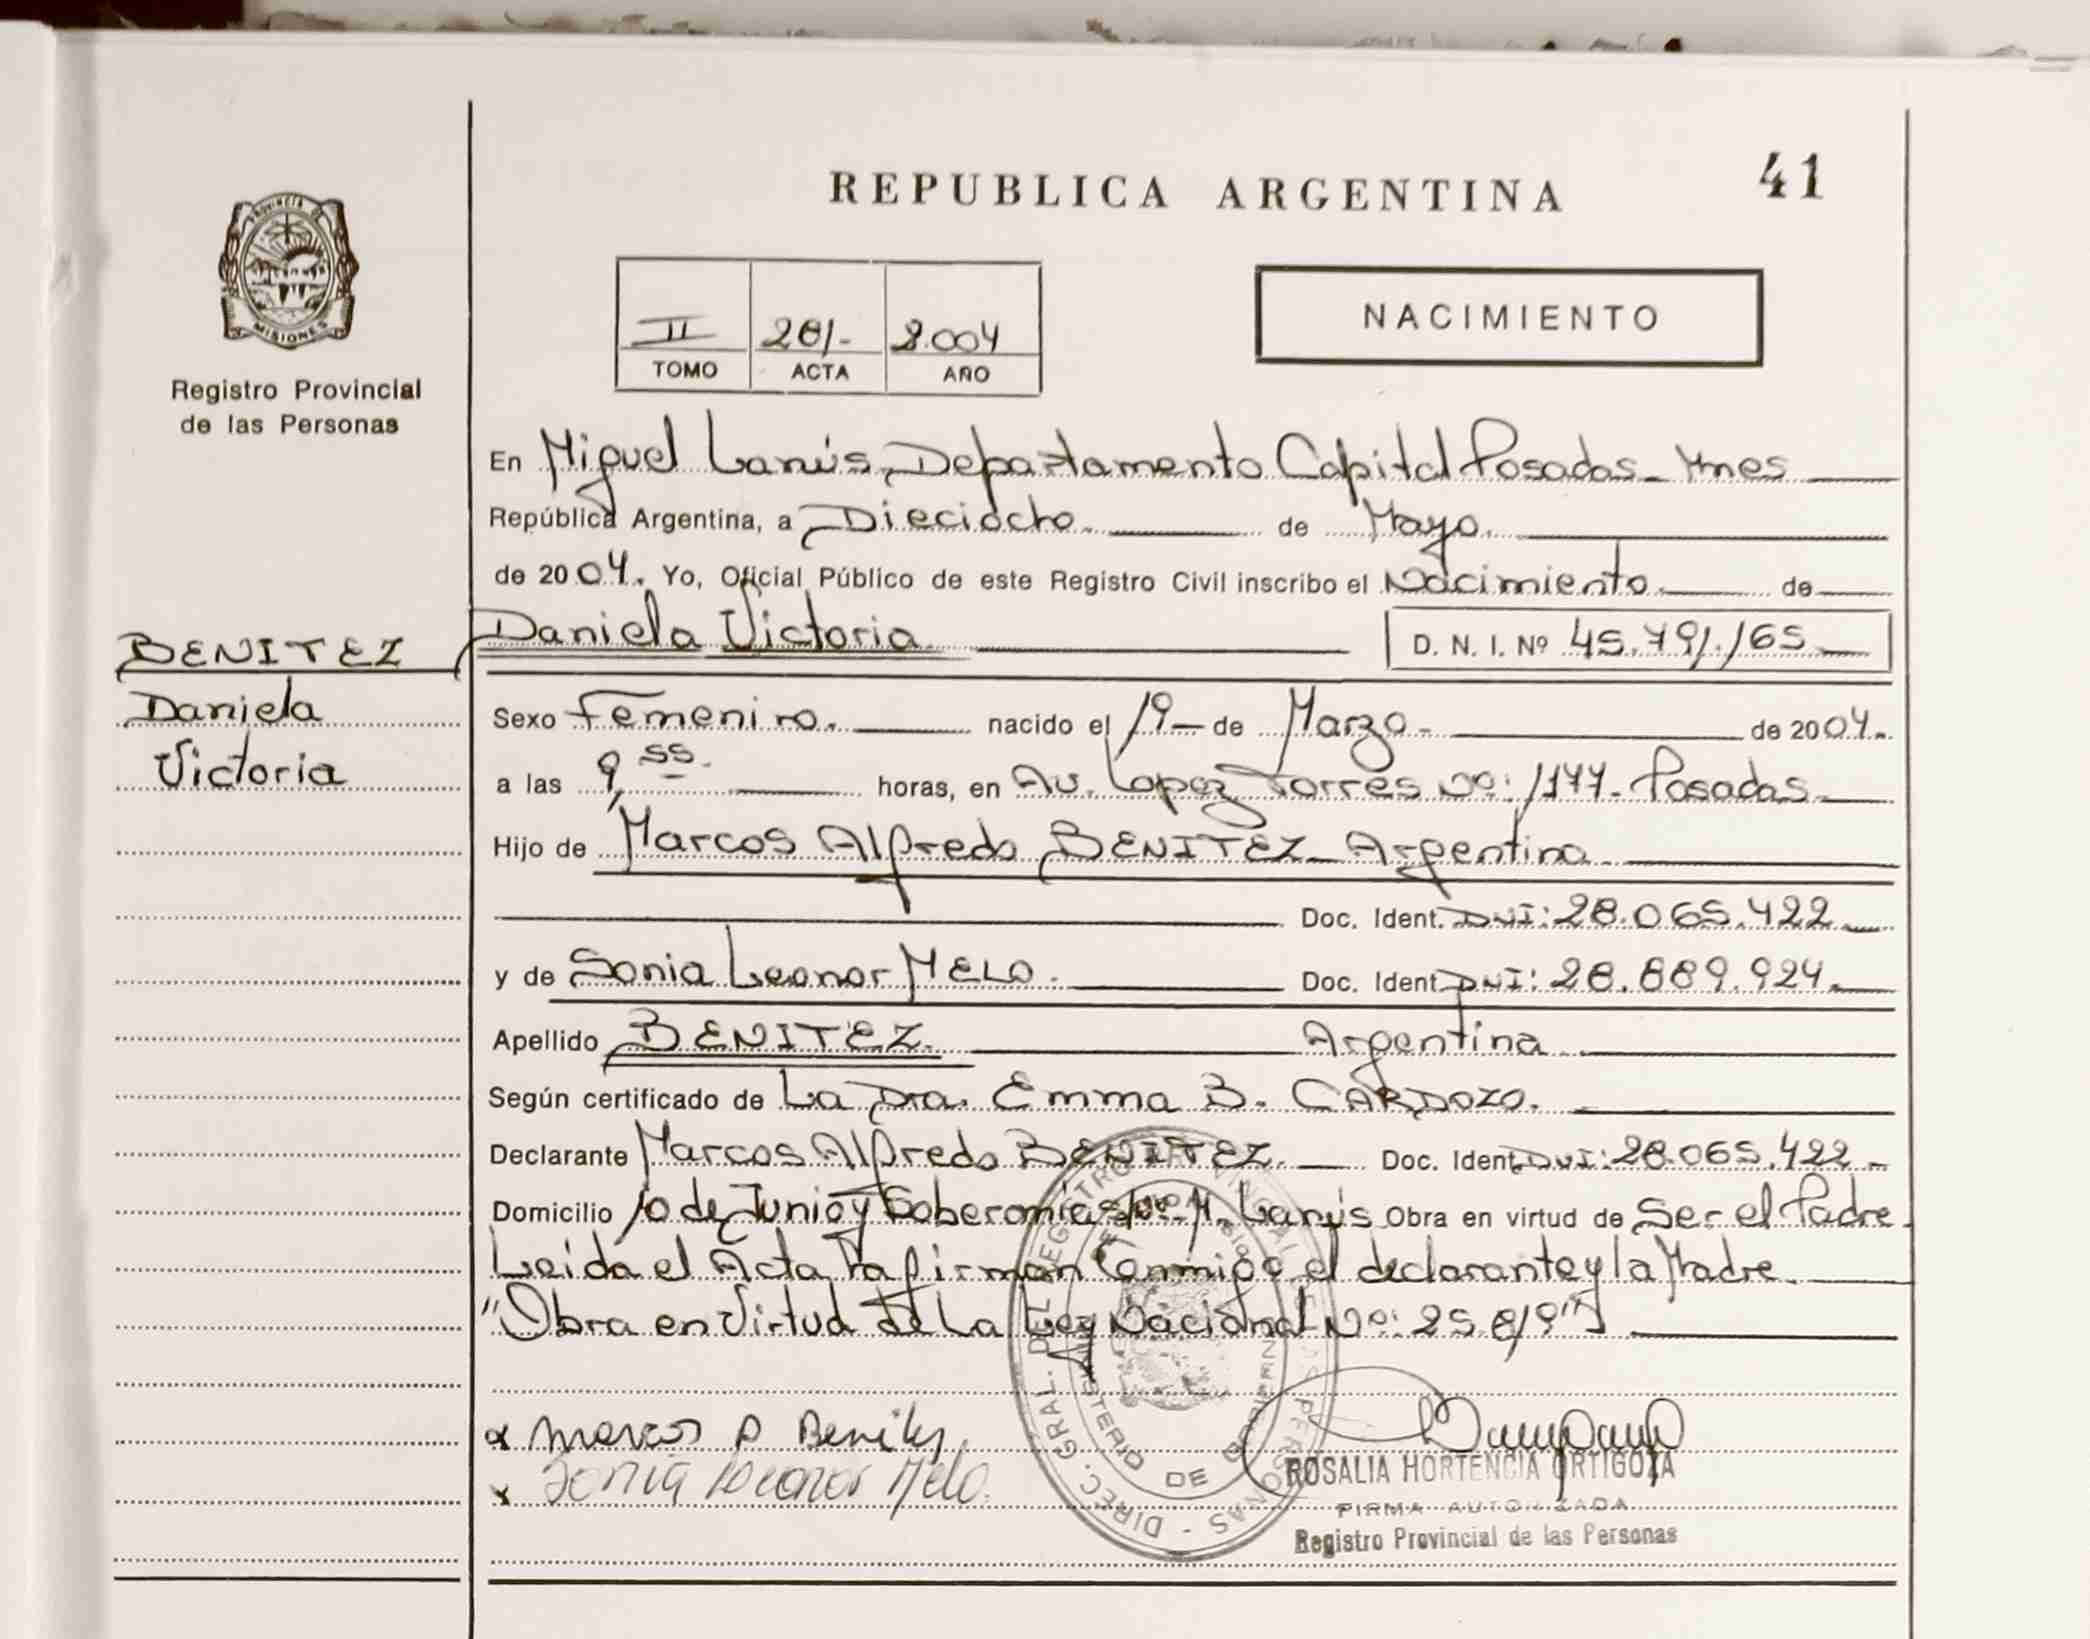 REPUBLICA ARGENTINA
41
PROVINCIA DE
MISIONES
Registro Provincial
de las Personas
II 281.- 2.004
TOMO ACTA AÑO
NACIMIENTO
En Miguel Lanús, Departamento Capital Posadas - Mnes
República Argentina, a Dieciocho. de Mayo.
de 2004. Yo, Oficial Público de este Registro Civil inscribo el Nacimiento de
BENITEZ
Daniela
Victoria
Daniela Victoria D. N. I. Nº 45.791.165
Sexo Femenino. nacido el 19 - de Marzo - de 2004.-
a las 9,55. horas, en Av. Lopez Torres Nº: 1177- Posadas
Hijo de Marcos Alfredo BENITEZ - Argentino
Doc. Ident. DNI: 28.065.422
y de Sonia Leonor MELO. Doc. Ident. DNI: 28.889.924.
Apellido BENITEZ. Argentina
Según certificado de La Dra. Emma B. CARDOZO.
Declarante Marcos Alfredo BENITEZ. Doc. Ident. DNI: 28.065.422 -
Domicilio 10 de Junio y Soberanía M. Lanús Obra en virtud de Ser el Padre
Leida el Acta la firman Conmigo el declarante y la Madre.
"Obra en Virtud de La Ley Nacional Nº: 25.819"
x Marcos A Benitez
x Sonia Leonor Melo.
DIREC. GRAL. DEL REGISTRO PROVINCIAL DE LAS PERSONAS
MINISTERIO DE
ROSALIA HORTENCIA ORTIGOZA
FIRMA AUTORIZADA
Registro Provincial de las Personas